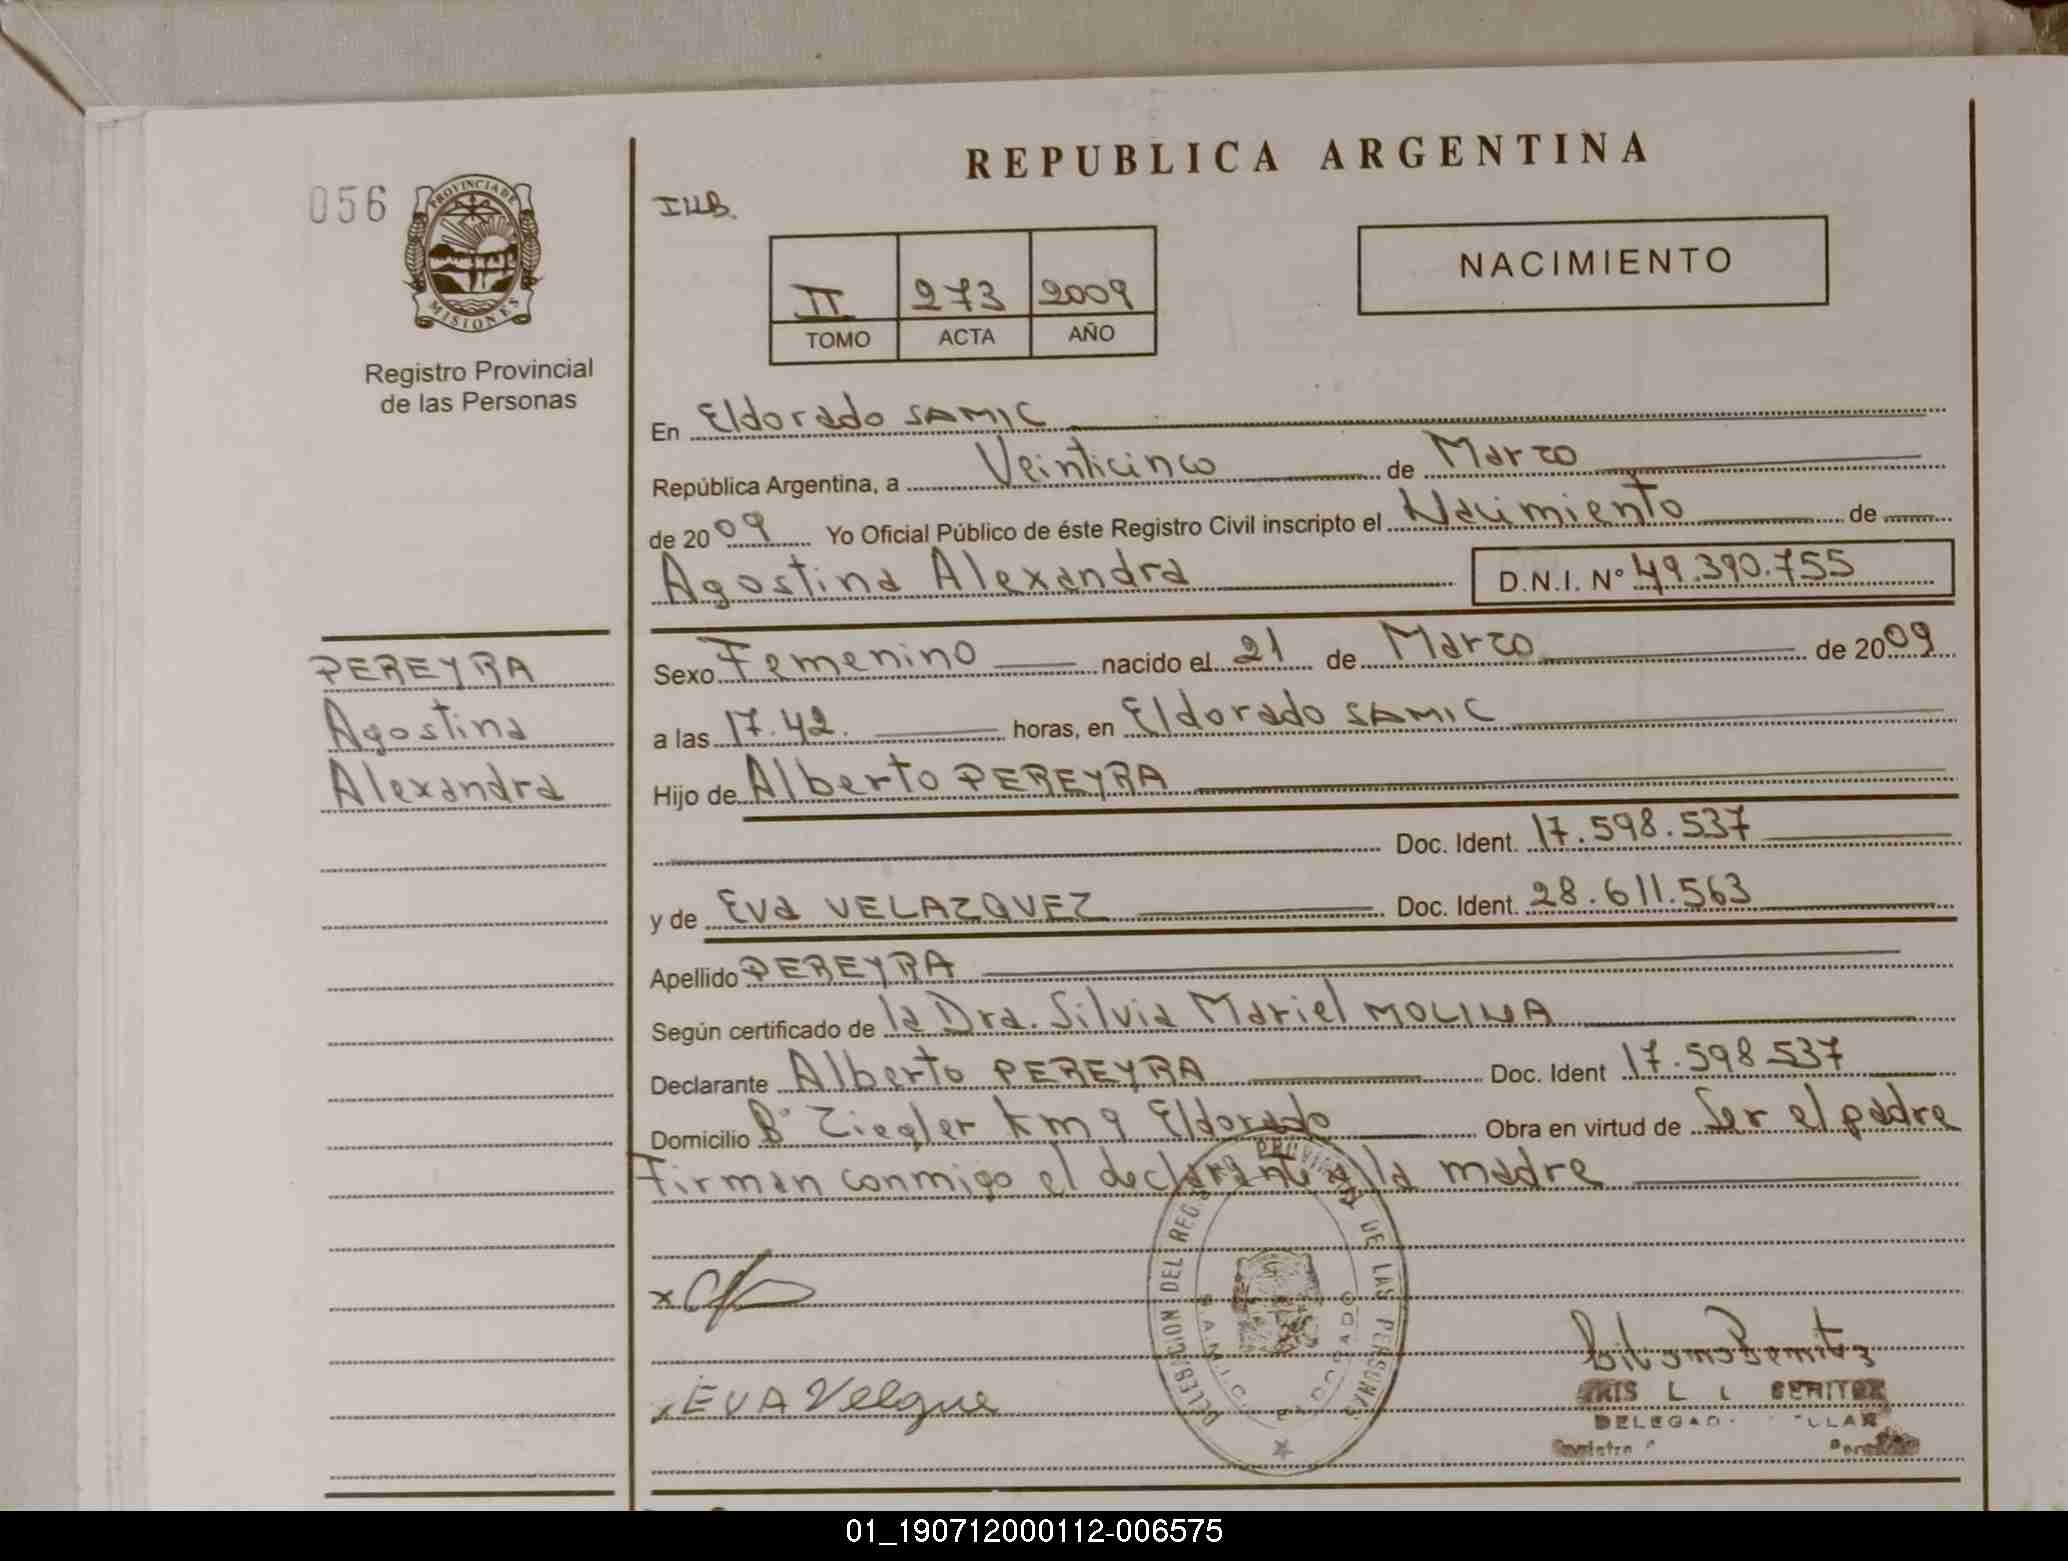 REPUBLICA ARGENTINA
056
PROVINCIA DE
MISIONES
Registro Provincial
de las Personas
NACIMIENTO
II 273 2009
TOMO ACTA AÑO
En Eldorado SAMIC
República Argentina, a Veinticinco de Marzo
de 2009 Yo Oficial Público de éste Registro Civil inscripto el Nacimiento de
Agostina Alexandra D.N.I. Nº 49.390.755
PEREYRA
Agostina
Alexandra
Sexo Femenino nacido el 21 de Marzo de 2009
a las 17.42. horas, en Eldorado SAMIC
Hijo de Alberto PEREYRA
Doc. Ident. 17.598.537
y de Eva VELAZQUEZ Doc. Ident. 28.611.563
Apellido PEREYRA
Según certificado de la Dra. Silvia Mariel MOLINA
Declarante Alberto PEREYRA Doc. Ident 17.598.537
Domicilio Bº Ziegler Km 9 Eldorado Obra en virtud de Ser el padre
Firman conmigo el declarante y la madre
DELEGACION DEL REG. PROVINCIAL DE LAS PERSONAS
SAMIC ELDORADO
EVA
01_190712000112-006575